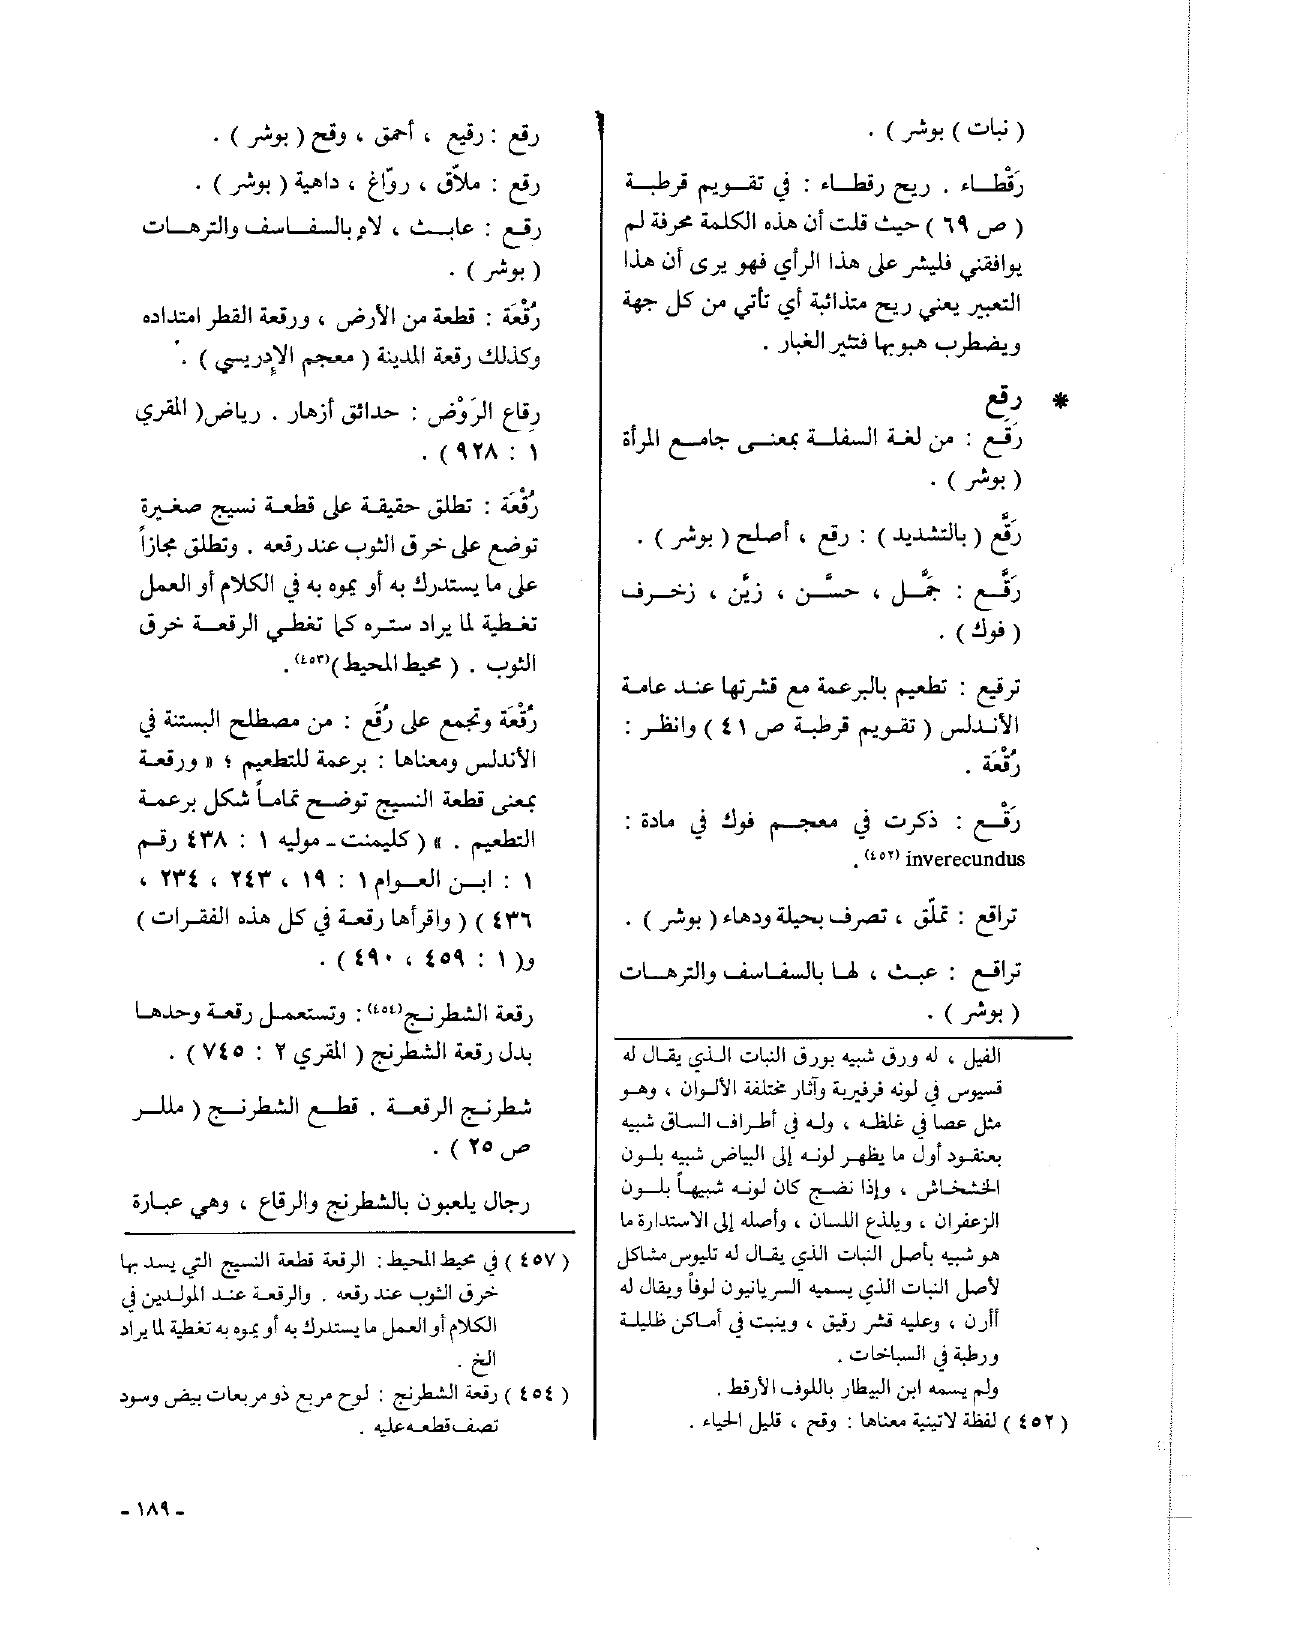 ( نبات ) بوشر ) .
رَقْطـاء . ريح رقطـاء : في تقـويم قرطبـة
( ص ٦٩ ) حيث قلت أن هذه الكلمة محرفة لم
يوافقني فليشر على هذا الرأي فهو يرى أن هذا
التعبير يعني ريح متذائبة أي تأتي من كل جهة
ويضطرب هبوبها فتثير الغبار .
* رقع
رَقَـع : من لغة السفلـة بمعنـى جامـع المرأة
( بوشر ) .
رَقَّع ( بالتشديد ) : رقع ، أصلح ( بوشر ) .
رَقَّـع : جمَّـل ، حسَّـن ، زيَّن ، زخـرف
( فوك ) .
ترقيع : تطعيم بالبرعمة مع قشرتها عنـد عامـة
الأندلس ( تقـويم قرطبـة ص ٤١ ) وانظـر :
رُقْعَة .
رَقْـع : ذكرت في معجـم فوك في مادة :
inverecundus (٤٥٢) .
تراقع : تملّق ، تصرف بحيلة ودهاء ( بوشر ) .
تراقـع : عبـث ، لها بالسفـاسف والترهـات
( بوشر ) .
الفيل ، له ورق شبيه بورق النبات الـذي يقـال له
قسيوس في لونه فرفيرية وآثار مختلفة الألوان ، وهـو
مثل عصا في غلظـه ، ولـه في أطراف السـاق شبيه
بعنقـود أول ما يظهـر لونـه إلى البياض شبيه بلـون
الخشخاش ، وإذا نضـج كان لونـه شبيهـاً بلـون
الزعفران ، ويلذع اللسان ، وأصله إلى الاستدارة ما
هو شبيه بأصل النبات الذي يقال له تليوس مشاكل
لأصل النبات الذي يسميه السريانيون لوفاً ويقال له
أأرن ، وعليه قشر رقيق ، وينبت في أماكن ظليلـة
ورطبة في السباخات .
ولم يسمه ابن البيطار باللوف الأرقط .
( ٤٥٢ ) لفظة لاتينية معناها : وقح ، قليل الحياء .
رقع : رقيع ، أحمق ، وقح ( بوشر ) .
رقع : ملاّق ، روّاغ ، داهية ( بوشر ) .
رقـع : عابـث ، لاهٍ بالسفـاسف والترهـات
( بوشر ) .
رُقْعَة : قطعة من الأرض ، ورقعة القطر امتداده
وكذلك رقعة المدينة ( معجم الإدريسي ) .
رقاع الرَوْض : حدائق أزهار . رياض ( المقري
١ : ٩٢٨ ) .
رُقْعَة : تطلق حقيقـة على قطعـة نسيج صغيرة
توضع على خرق الثوب عند رقعه . وتطلق مجازاً
على ما يستدرك به أو يموه به في الكلام أو العمل
تغطية لما يراد ستره كما تغطي الرقعـة خرق
الثوب . ( محيط المحيط )(٤٥٣) .
رُقْعَة وتجمع على رُقَع : من مصطلح البستنة في
الأندلس ومعناها : برعمة للتطعيم ؛ « ورقعـة
بمعنى قطعة النسيج توضـح تمامـاً شكل برعمـة
التطعيم . » ( كليمنت - موليه ١ : ٤٣٨ رقـم
١ : ابـن العـوام ١ : ١٩ ، ٢٤٣ ، ٢٣٤ ،
٤٣٦ ) ( واقرأها رقعـة في كل هذه الفقـرات )
و( ١ : ٤٥٩ ، ٤٩٠ ) .
رقعة الشطرنـج(٤٥٤) : وتستعمـل رقعـة وحدهـا
بدل رقعة الشطرنج ( المقري ٢ : ٧٤٥ ) .
شطرنـج الرقعـة . قطـع الشطرنـج ( مللـر
ص ٢٥ ) .
رجال يلعبون بالشطرنج والرقاع ، وهي عبارة
( ٤٥٧ ) في محيط المحيط : الرقعة قطعة النسيج التي يسد بها
خرق الثوب عند رقعه . والرقعـة عنـد المولـدين في
الكلام أو العمل ما يستدرك به أو يموه به تغطية لما يراد
الخ .
( ٤٥٤ ) رقعة الشطرنج : لوح مربع ذو مربعات بيض وسود
تصف قطعه عليه .
- ١٨٩ -